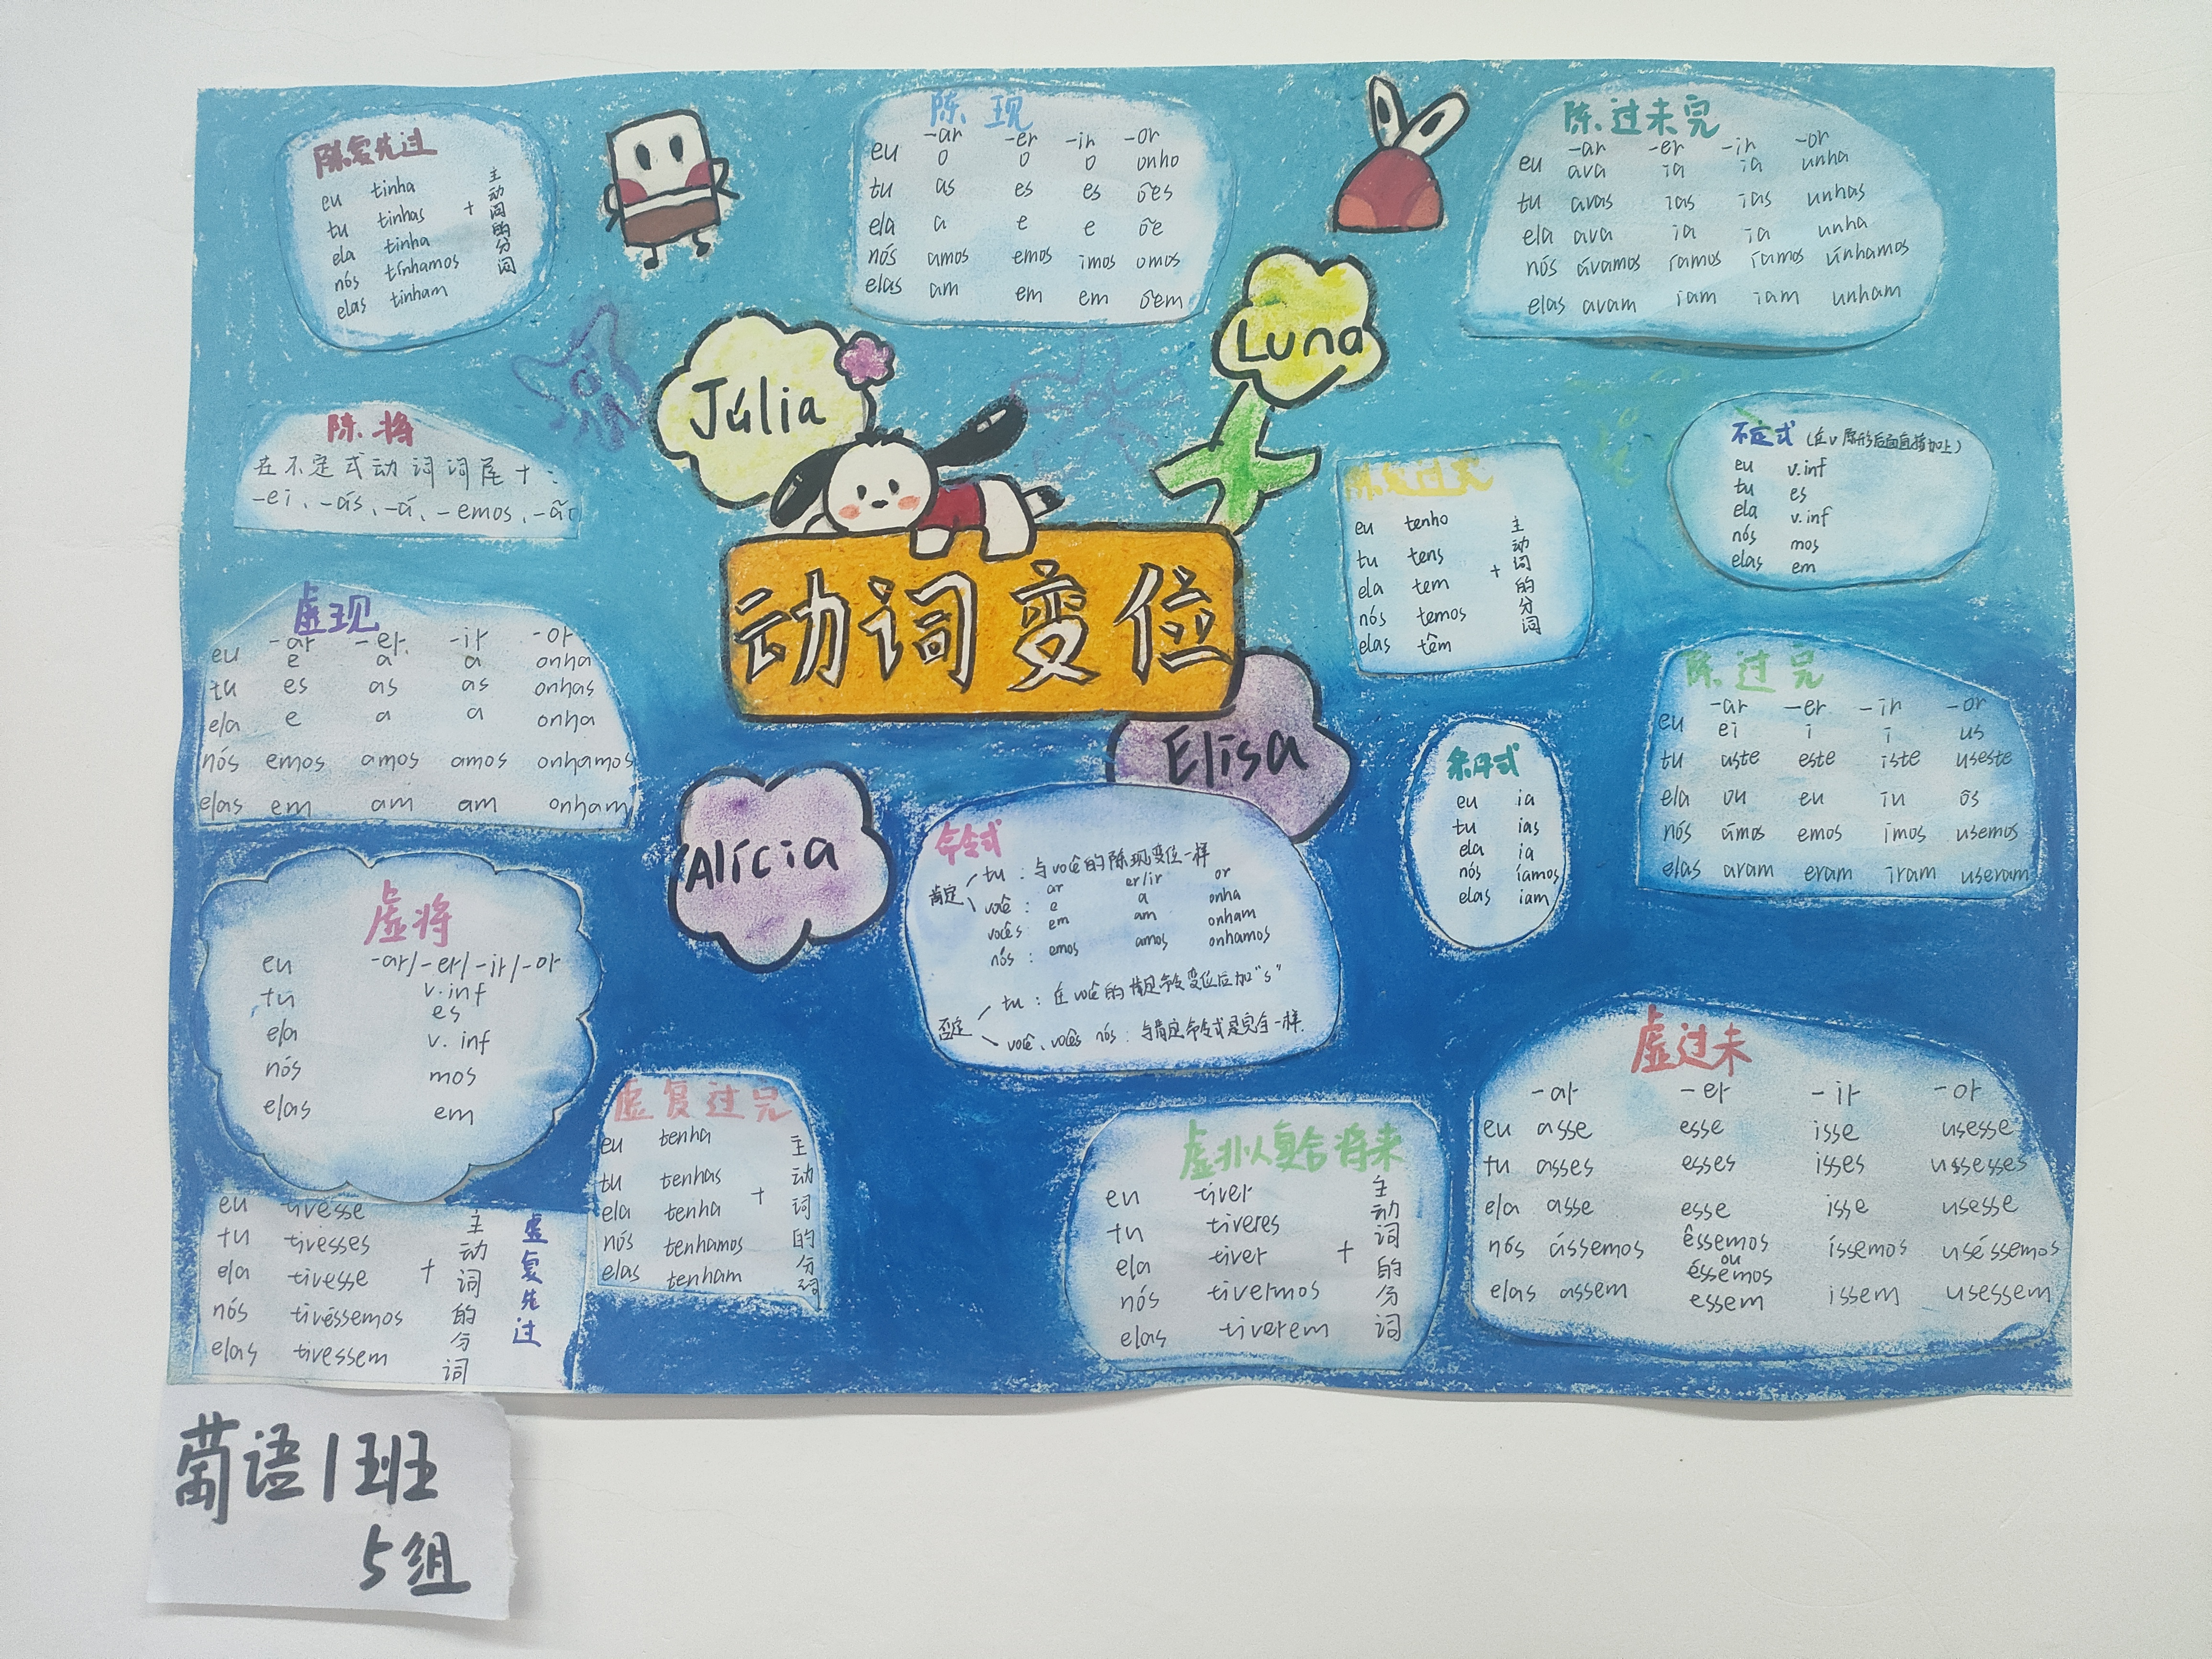 陈复先过
eu tinha
tu tinhas
ela tinha
nós tínhamos
elas tinham
+
主动词的分词
陈.现
-ar -er -ir -or
eu o o o onho
tu as es es ões
ela a e e õe
nós amos emos imos omos
elas am em em õem
陈.过未完
-ar -er -ir -or
eu ava ia ia unha
tu avas ias ias unhas
ela ava ia ia unha
nós ávamos íamos íamos únhamos
elas avam iam iam unham
Júlia
Luna
陈.将
在不定式动词词尾+:
-ei、-ás、-á、-emos、-ão
动词变位
eu tenho
tu tens
ela tem
nós temos
elas têm
+
主动词的分词
不定式 (在v原形后面直接加上)
eu v.inf
tu es
ela v.inf
nós mos
elas em
虚现
-ar -er. -ir -or
eu e a a onha
tu es as as onhas
ela e a a onha
nós emos amos amos onhamos
elas em am am onham
陈.过完
-ar -er -ir -or
eu ei i i us
tu aste este iste useste
ela ou eu iu ôs
nós ámos emos imos usemos
elas aram eram iram useram
Elisa
Alícia
条件式
eu ia
tu ias
ela ia
nós íamos
elas iam
命令式
肯定
tu : 与você的陈现变位一样
ar er/ir or
você : e a onha
vocês : em am onham
nós : emos amos onhamos
否定
tu : 在você的肯定命令变位后加"s"
você、vocês nós : 与肯定命令式是完全一样.
虚将
-ar/-er/-ir/-or
eu v.inf
tu es
ela v.inf
nós mos
elas em
虚复过完
eu tenha
tu tenhas
ela tenha
nós tenhamos
elas tenham
+
主动词的分词
虚复先过
eu tivesse
tu tivesses
ela tivesse
nós tivéssemos
elas tivessem
+
主动词的分词
eu tiver
tu tiveres
ela tiver
nós tivermos
elas tiverem
+
主动词的分词
虚过未
-ar -er -ir -or
eu asse esse isse usesse
tu asses esses isses ussesses
ela asse esse isse usesse
nós ássemos êssemos ou éssemos íssemos uséssemos
elas assem essem issem usessem
萄语1班
5组